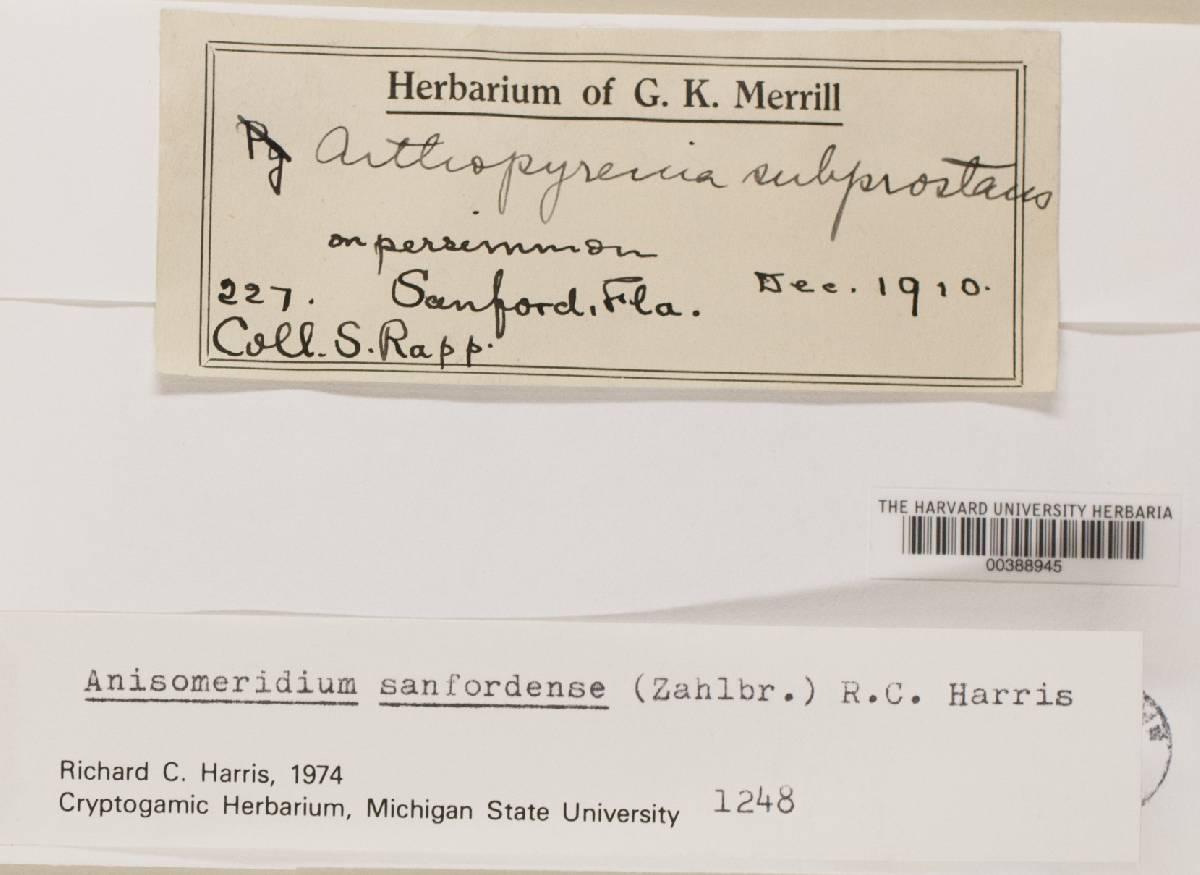 Herbarium of G. K. Merrill
Arthopyrenia subprostans
on persimmon
227. Sanford, Fla. Dec. 1910.
Coll. S. Rapp.
THE HARVARD UNIVERSITY HERBARIA
00388945
Anisomeridium sanfordense (Zahlbr.) R.C. Harris
Richard C. Harris, 1974
Cryptogamic Herbarium, Michigan State University 1248